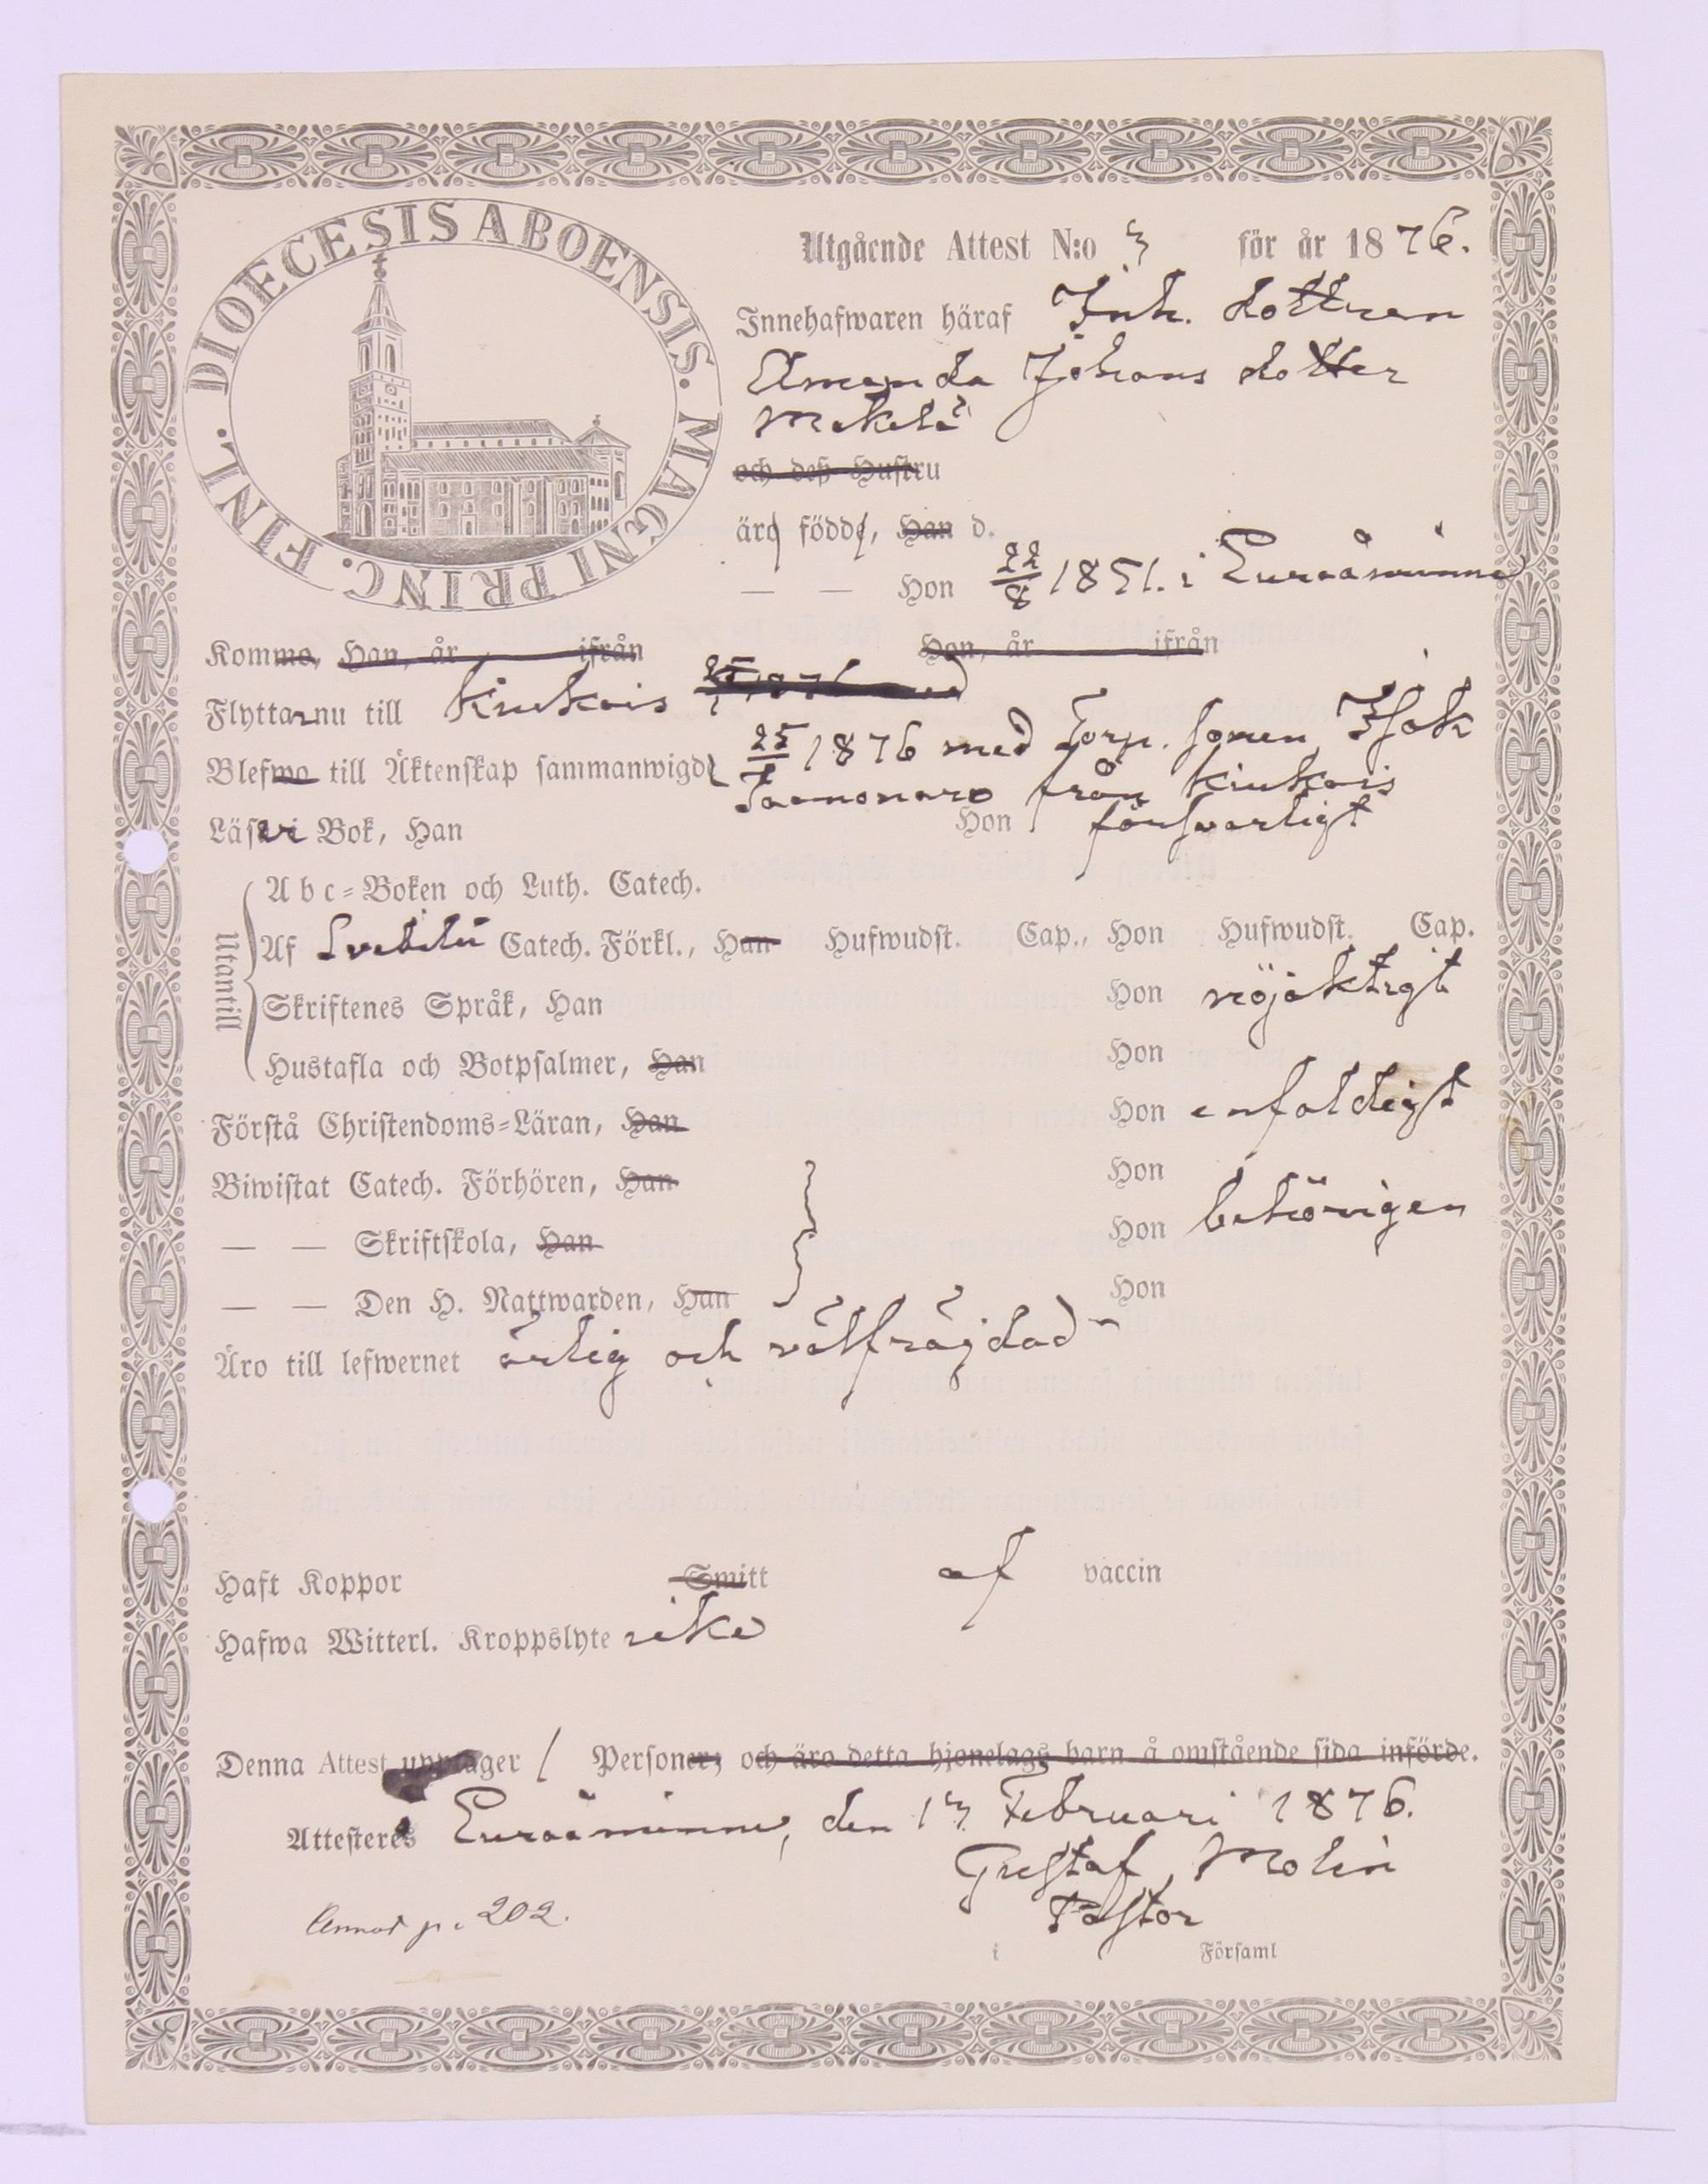 DIOECESIS ABOENSIS. MAGNI PRINC. FINL.
Utgående Attest N:o 3 för år 1876.
Innehafwaren häraf Inh. dottren
Amanda Johans dotter
Mäkelä
och deß Hustru
äro födde, Han d.
— — Hon 22/8 1851. i Euraåminne
Komma, Han, år ifrån Hon, år ifrån
Flyttar nu till Kiukais 25/1 1876 med
Blefwo till Äktenskap sammanwigd 25/1 1876 med Torp. sonen Isak
Jaamonaro från Kiukais
Läser i Bok, Han Hon försvarligt
Utantill
Abc-Boken och Luth. Catech.
Af Svebelii Catech. Förkl., Han Hufwudst. Cap., Hon Hufwudst. Cap.
Skriftenes Språk, Han Hon nöjaktigt
Hustafla och Botpsalmer, Han Hon
Förstå Christendoms-Läran, Han Hon enfaldigt
Biwistat Catech. Förhören, Han Hon
— — Skriftskola, Han Hon behörigen
— — Den H. Nattwarden, Han Hon
Äro till lefwernet ärlig och välfrägdad
Haft Koppor Smitt af vaccin
Hafwa Witterl. Kroppslyte icke
Denna Attest upptager 1 Personer, och äro detta hjonelags barn å omstående sida införde.
Attesteres Euraåminne, den 13 Februari 1876.
Gustaf Molin
Pastor
Annot. p. 202.
i Församl